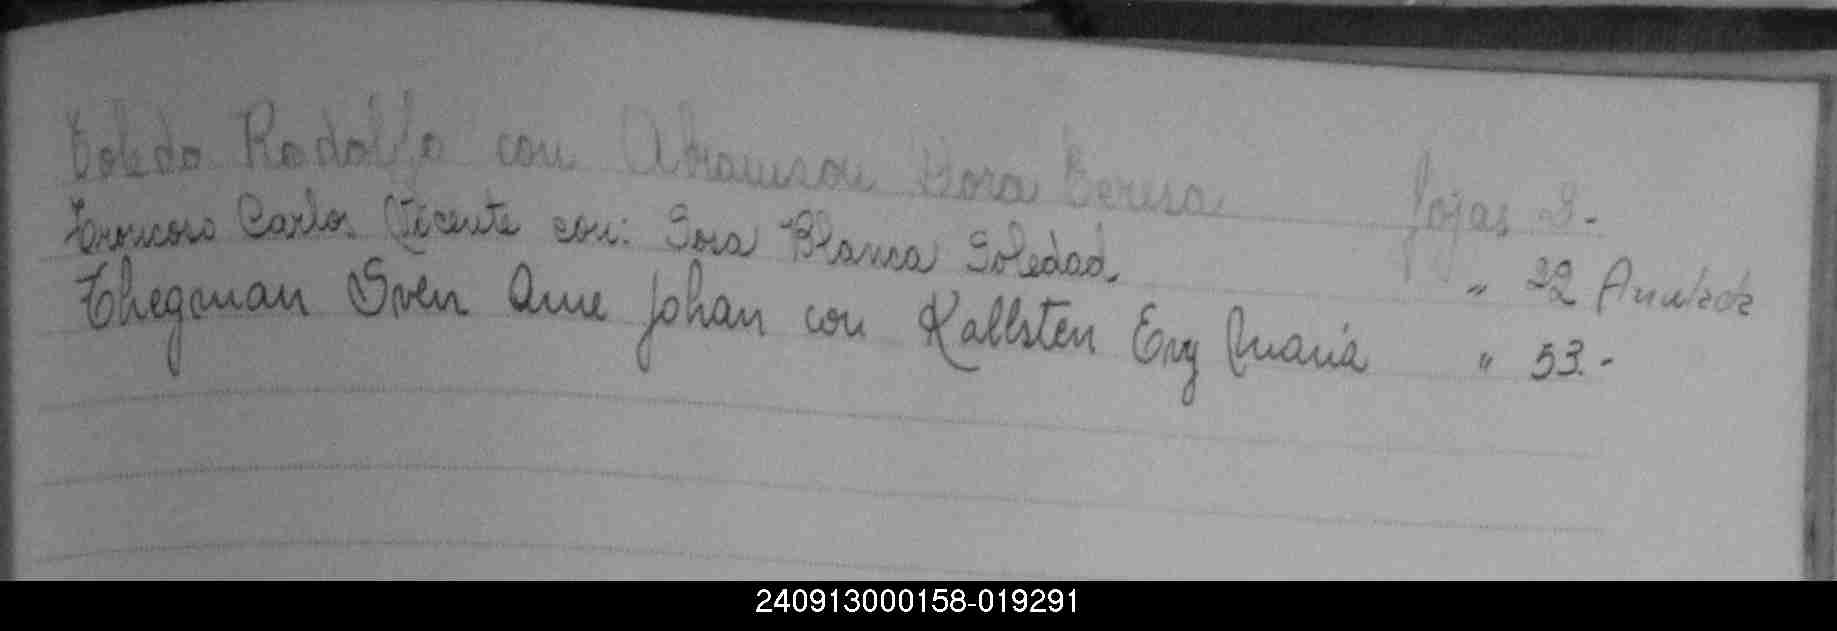 Toledo Rodolfo con Abramson Dora Teresa fojas 9.-
Carlos Vicente con: Sosa Blanca Soledad. " 22 Anulada
Thegman Sven Arne Johan con Kallsten Evy Maria " 53.-
240913000158-019291